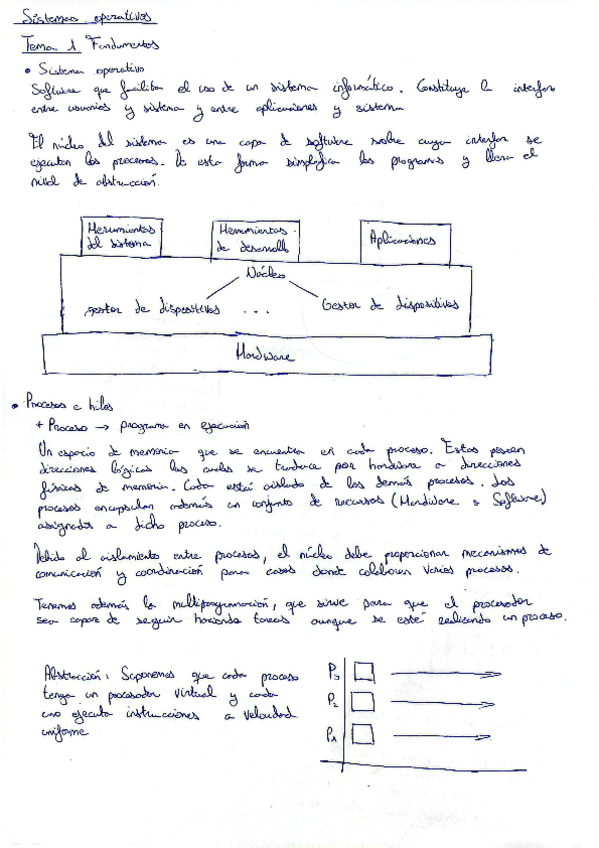 Sistemas operativos
Tema 1. Fundamentos
• Sistema operativo
Software que facilita el uso de un sistema informático. Constituye la interfaz
entre usuarios y sistema y entre aplicaciones y sistema
El núcleo del sistema es una capa de software sobre cuya interfaz se
ejecutan los procesos. De esta forma simplifica los programas y el
nivel de abstracción.
Herramientas del sistema
Herramientas de desarrollo
Aplicaciones
Núcleo
gestor de dispositivos ... Gestor de dispositivos
Hardware
• Procesos e hilos
+ Proceso → programa en ejecución
Un espacio de memoria que se encuentra en cada proceso. Estos poseen
direcciones lógicas las cuales se traduce por hardware a direcciones
físicas de memoria. Cada está aislado de los demás procesos. Los
procesos encapsulan además un conjunto de recursos (Hardware o Software)
asignados a dicho proceso.
Debido al aislamiento entre procesos, el núcleo debe proporcionar mecanismos de
comunicación y coordinación para casos donde colaboren varios procesos.
Tenemos además la multiprogramación, que sirve para que el procesador
sea capaz de seguir haciendo tareas aunque se esté realizando un proceso.
Abstracción: Suponemos que cada proceso
tenga un procesador virtual y cada
uno ejecuta instrucciones a velocidad
uniforme
P3
P2
P1